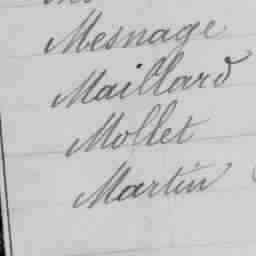 Mesnage
Maillard
Mollet
Martin